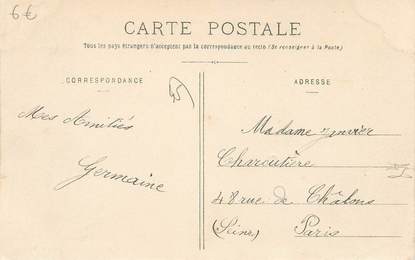 6€
CARTE POSTALE
Tous les pays étrangers n'acceptent pas la correspondance au recto (Se renseigner à la Poste)
CORRESPONDANCE
ADRESSE
Mes Amitiés
Germaine
Madame Janvier
Charcutière
48 rue de Châlons
(Seine) Paris